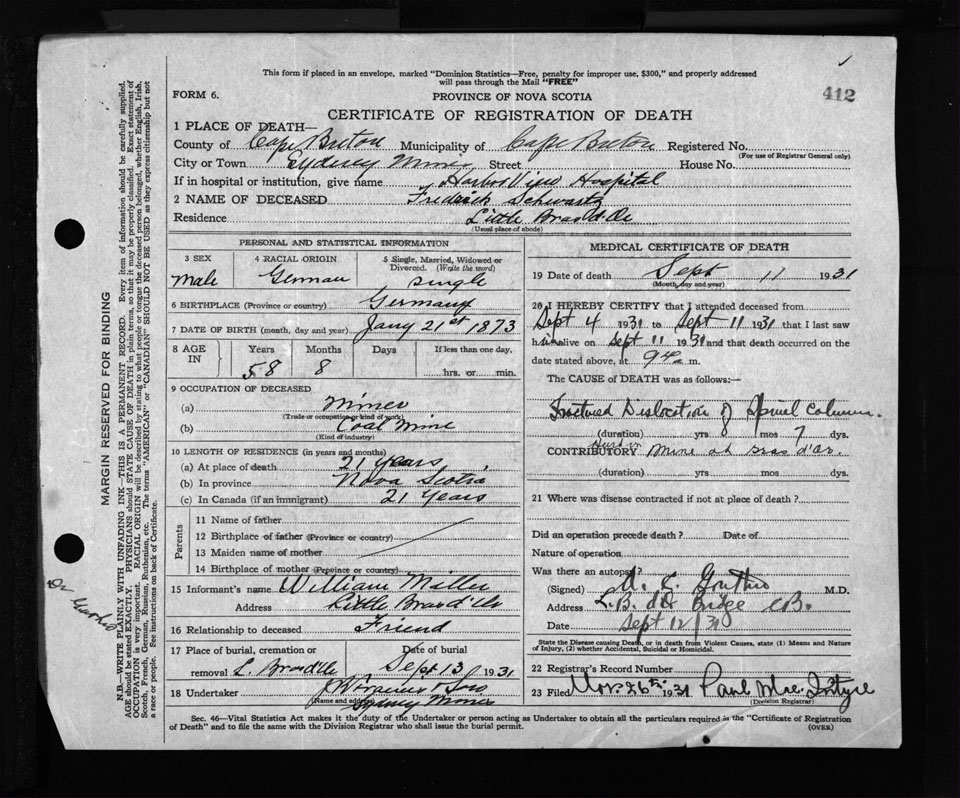 This form if placed in an envelope, marked "Dominion Statistics—Free, penalty for improper use, $300," and properly addressed
will pass through the Mail "FREE"
412
FORM 6.
PROVINCE OF NOVA SCOTIA
CERTIFICATE OF REGISTRATION OF DEATH
1 PLACE OF DEATH—
County of Cape Breton Municipality of Cape Breton Registered No.
(For use of Registrar General only)
City or Town Sydney Mines Street House No.
If in hospital or institution, give name Harbor View Hospital
2 NAME OF DECEASED Frederick Schwartz
Residence Little Bras d'Or
(Usual place of abode)
PERSONAL AND STATISTICAL INFORMATION
3 SEX 4 RACIAL ORIGIN 5 Single, Married, Widowed or
Divorced. (Write the word)
Male German single
6 BIRTHPLACE (Province or country) Germany
7 DATE OF BIRTH (month, day and year) Jany 21st 1873
8 AGE IN Years Months Days If less than one day,
58 8 hrs. or min.
9 OCCUPATION OF DECEASED
(a) Miner
(Trade or occupation or kind of work)
(b) Coal Mine
(Kind of industry)
10 LENGTH OF RESIDENCE (in years and months)
(a) At place of death 21 years
(b) In province Nova Scotia
(c) In Canada (if an immigrant) 21 Years
Parents
11 Name of father
12 Birthplace of father (Province or country)
13 Maiden name of mother
14 Birthplace of mother (Province or country)
15 Informant's name William Miller
Address Little Bras d'Or
16 Relationship to deceased Friend
17 Place of burial, cremation or Date of burial
removal L. Bras d'Or Sept 13 1931
18 Undertaker & Son
(Name and address) Sydney Mines
MEDICAL CERTIFICATE OF DEATH
19 Date of death Sept 11 1931
(Month, day and year)
20 I HEREBY CERTIFY that I attended deceased from
Sept 4 1931 to Sept 11 1931 that I last saw
him alive on Sept 11 1931 and that death occurred on the
date stated above, at m.
The CAUSE of DEATH was as follows:—
Fractured Dislocation of Spinal Column.
(duration) yrs mos 7 dys.
CONTRIBUTORY Hurt in Mine at Bras d'or.
(duration) yrs. mos. dys.
21 Where was disease contracted if not at place of death?
Did an operation precede death? Date of
Nature of operation
Was there an autopsy?
(Signed) M.D.
Address L. B. d'Or Bridge C.B.
Date Sept 12/31
State the Disease causing Death, or in death from Violent Causes, state (1) Means and Nature
of Injury, (2) whether Accidental, Suicidal or Homicidal.
22 Registrar's Record Number
23 Filed Nov 26th 1931 Paul McIntyre
(Division Registrar)
Sec. 46—Vital Statistics Act makes it the duty of the Undertaker or person acting as Undertaker to obtain all the particulars required in the "Certificate of Registration
of Death" and to file the same with the Division Registrar who shall issue the burial permit.
(OVER)
MARGIN RESERVED FOR BINDING
N.B.—WRITE PLAINLY WITH UNFADING INK—THIS IS A PERMANENT RECORD. Every item of information should be carefully supplied.
AGE should be stated EXACTLY. PHYSICIANS should STATE CAUSE OF DEATH in plain terms, so that it may be properly classified. Exact statement of
OCCUPATION is very important. RACIAL ORIGIN will be described by stating to what people or tongue the deceased person belonged, whether English, Irish,
Scotch, French, German, Russian, Ruthenian, etc. The terms "AMERICAN" or "CANADIAN" SHOULD NOT BE USED as they express citizenship but not
a race or people. See instructions on back of Certificate.